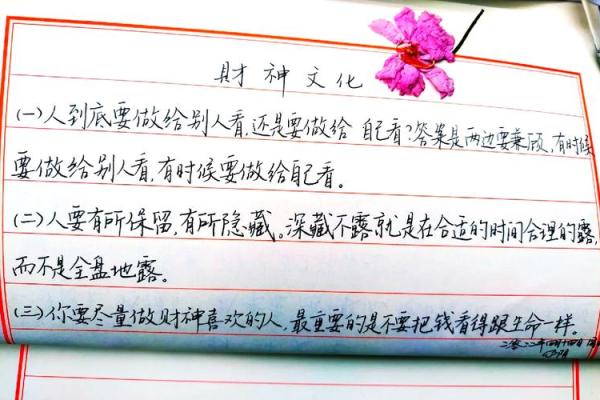 财神文化
(一)人到底要做给别人看,还是要做给 自己看?答案是两边要兼顾,有时候
要做给别人看,有时候要做给自己看。
(二)人要有所保留,有所隐藏。深藏不露就是在合适的时间合理的露,
而不是全盘地露。
(三)你要尽量做财神喜欢的人,最重要的是不要把钱看得跟生命一样。